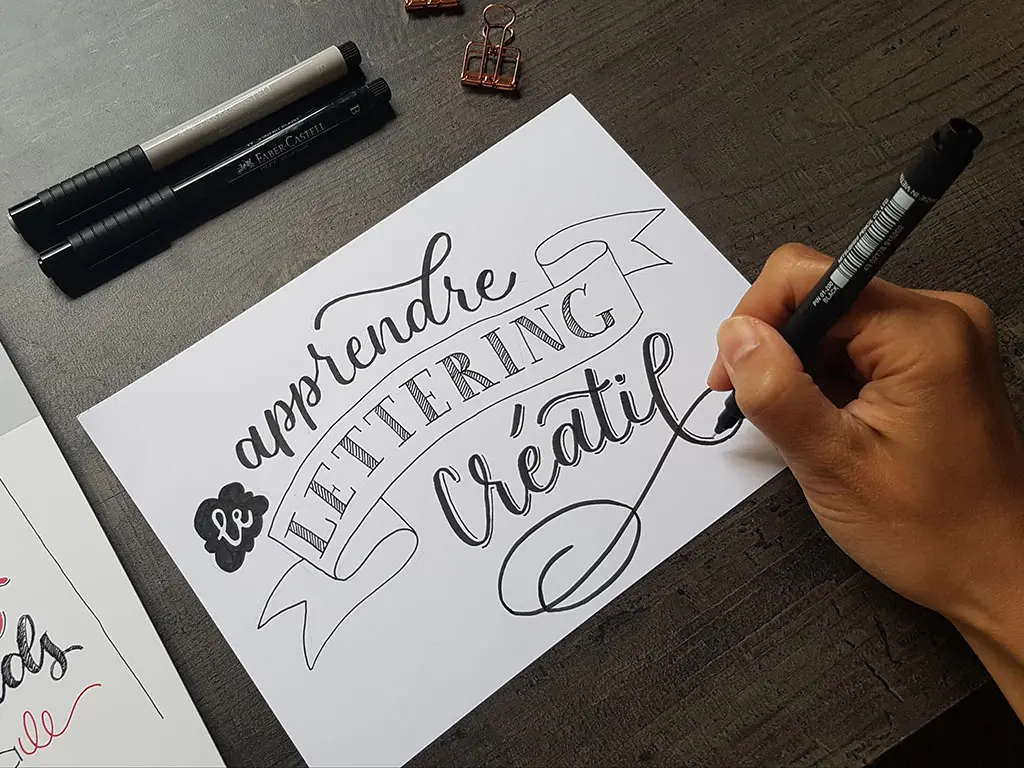 apprendre
le
LETTERING
créatif
FABER CASTELL
B
BLACK